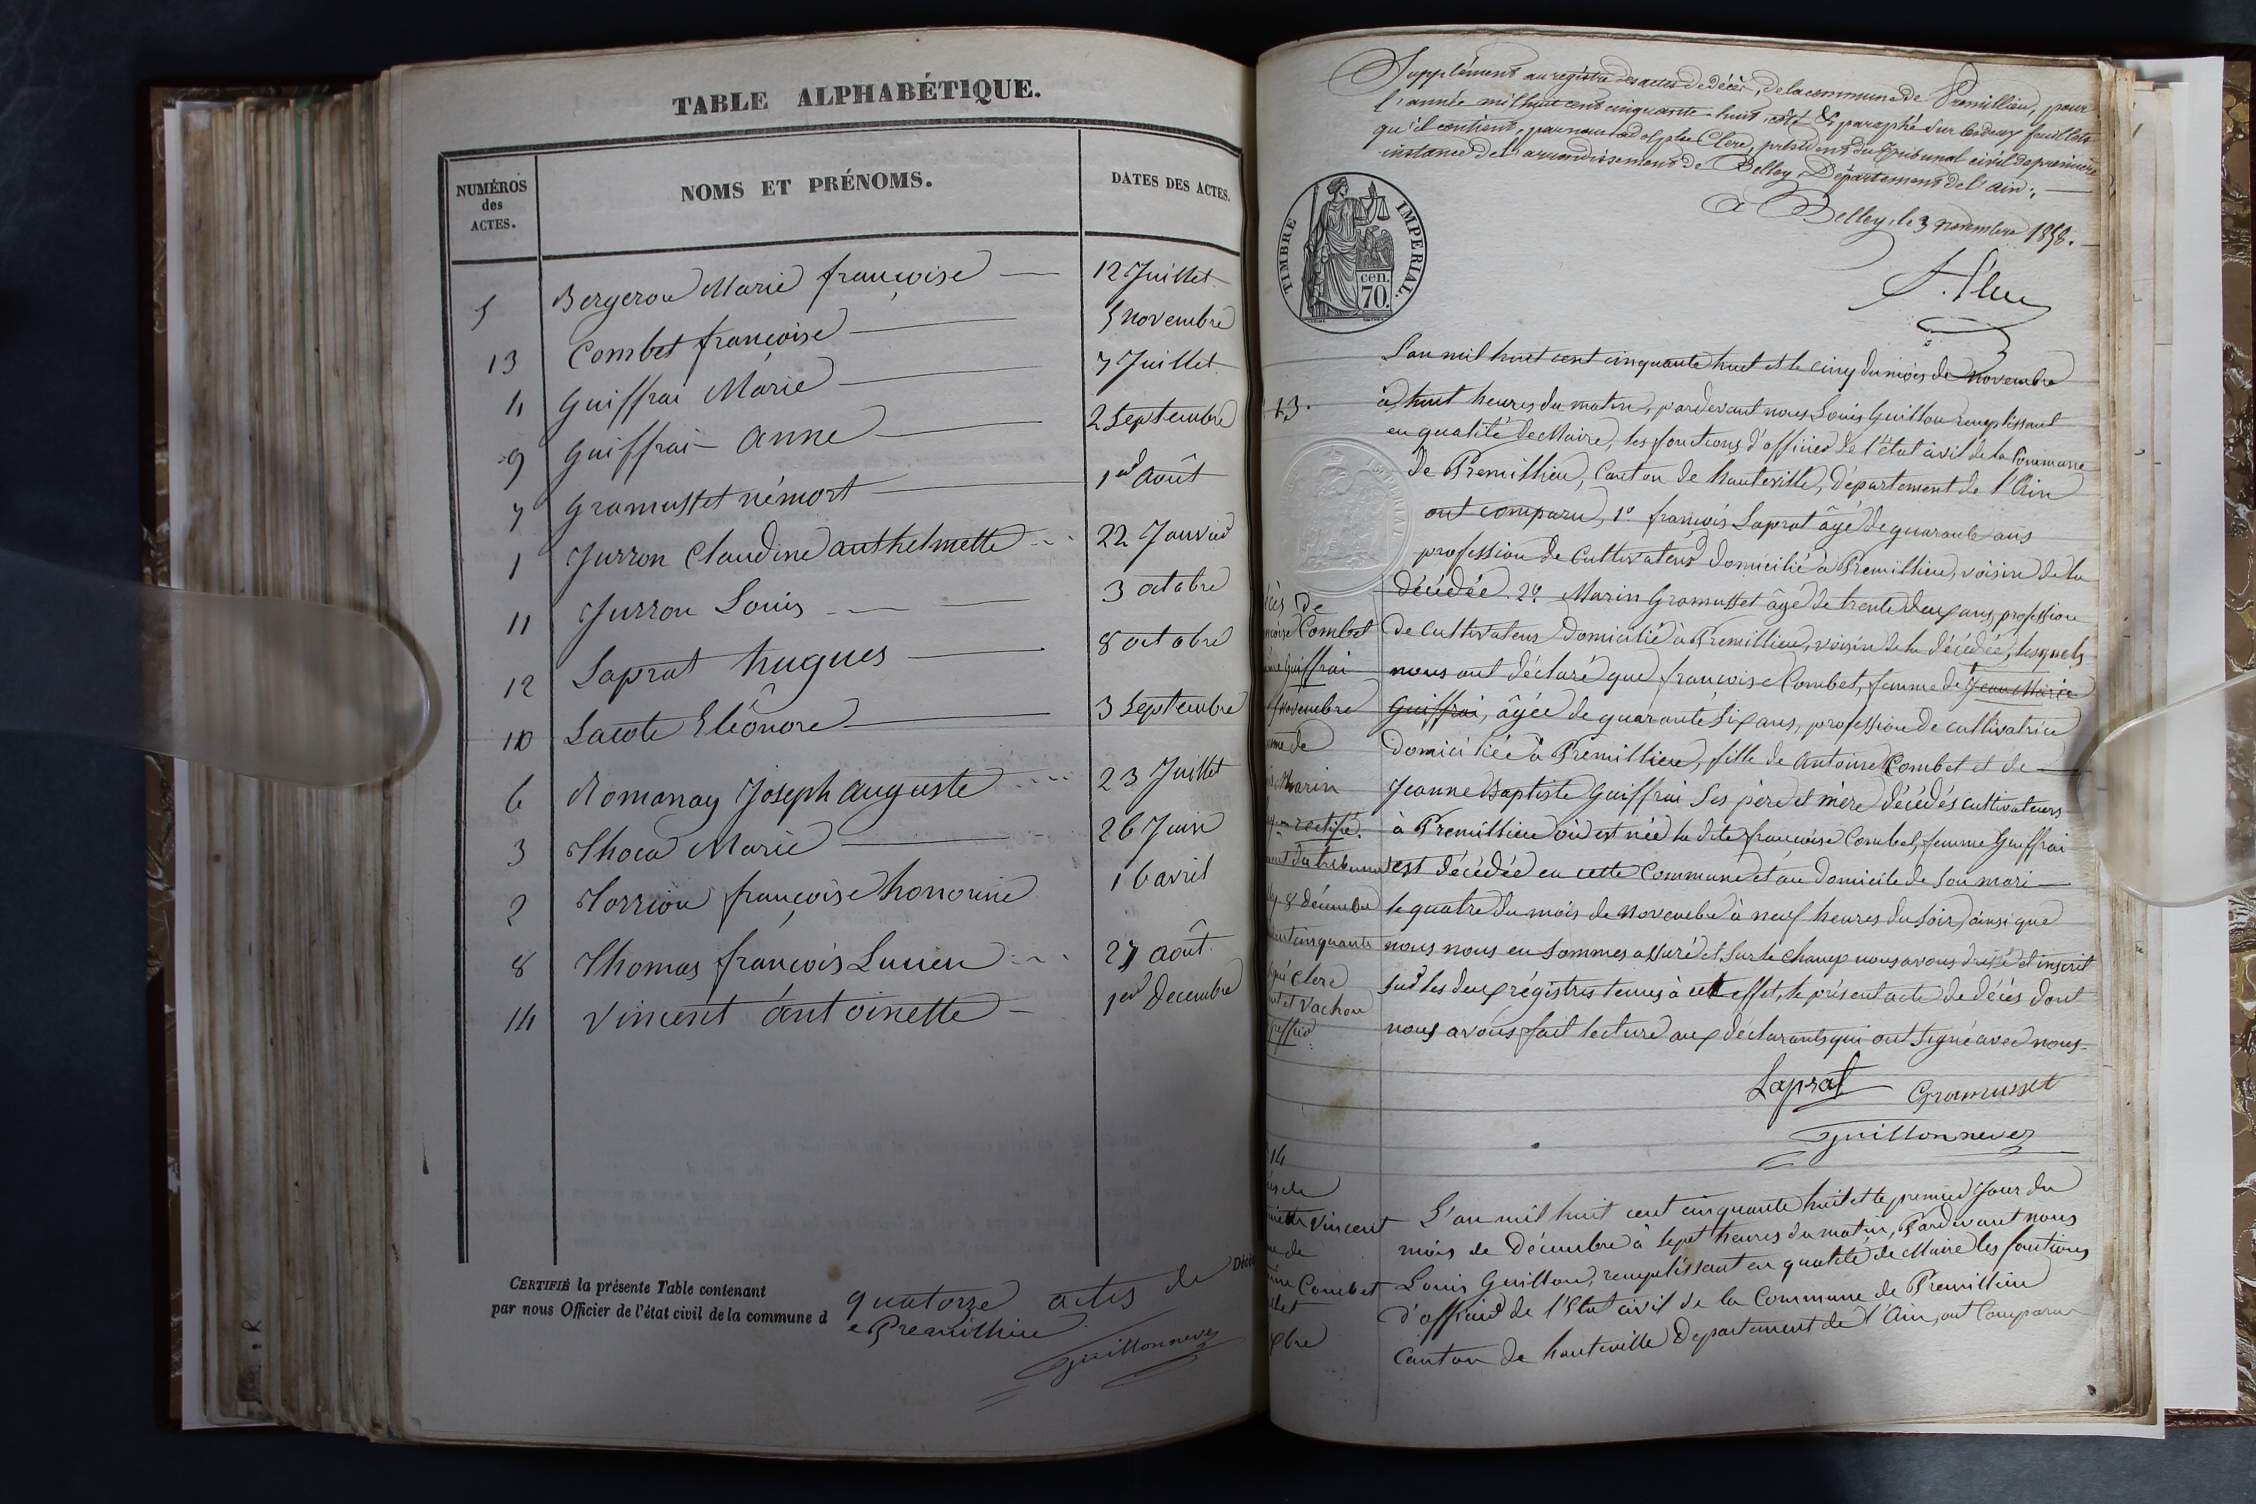 TABLE ALPHABÉTIQUE.
NUMÉROS des ACTES. NOMS ET PRÉNOMS. DATES DES ACTES.
5 Bergerou Marie françoise 12 Juillet
13 Combet françoise 5 novembre
4 Guiffrai Marie 7 Juillet
9 Guiffrai Anne 2 Septembre
7 Gramusset némort 1er Août
1 Jurron Claudine anthelmette 22 Janvier
11 Jurron Louis 3 octobre
12 Laprat hugues 8 octobre
10 Lacote Eléonore 3 Septembre
6 Romanay Joseph Auguste 23 Juillet
3 Marie 26 Juin
2 françoise honorine 16 avril
8 Thomas françois Lucien 27 août
14 Vincent Antoinette 1er Decembre
CERTIFIÉ la présente Table contenant quatorze actes de Décè
par nous Officier de l'état civil de la commune d e Premillieu
Guillonnever
Supplément au registre des actes de décès, de la commune de Premillieu, pour
l'année mil huit cent cinquante-huit, coté & paraphé sur les deux feuillets
qu'il contient, par nous adolphe Clerc, président du Tribunal civil de première
instance de l'arrondissement de Belley, Département de l'ain.
A Belley, le 3 novembre 1858.
TIMBRE IMPERIAL.
cen.
70.
L'an mil huit cent cinquante huit et le cinq du mois de Novembre
13. à huit heures du matin, pardevant nous Louis Guillon remplissant
en qualité de Maire, les fonctions d'officier de l'état civil de la Commune
de Premillieu, Canton de hauteville, département de l'Ain
ont comparu, 1º françois Laprat âgé de quarante ans
profession de Cultivateur domicilié à Premillieu, voisin de la
décédée. 2º Marin Gramusset âgé de trente deux ans, profession
de cultivateur domicilié à Premillieu, voisin de la décédée, lesquels
nous ont déclaré que françoise Combet, femme de Jean Marie
Guiffrai, âgée de quarante six ans, profession de cultivatrice
domiciliée à Premillieu, fille de Antoine Combet et de
Jeanne Baptiste Guiffrai ses père et mère décédés cultivateurs
à Premillieu où est née la dite françoise Combet, femme Guiffrai
est décédée en cette Commune et au domicile de son mari
le quatre du mois de Novembre à neuf heures du soir, ainsi que
nous nous en sommes assuré et sur le champ nous avons dressé et inscrit
sur les deux régistres tenus à cet effet, le présent acte de décès dont
nous avons fait lecture aux déclarants qui ont signé avec nous.
de
Combet
Guiffrai
Novembre
de
Marin
rectifié.
du tribunal
8 décembre
cinquante
Clerc
et Vachon
Laprat Gramusset
Guillonnever
14
Vincent
de
Combet
L'an mil huit cent cinquante huit et le premier jour du
mois de Décembre à sept heures du matin, Pardevant nous
Louis Guillon, remplissant en qualité de Maire les fonctions
d'officier de l'état civil de la Commune de Premillieu
Canton de hauteville Département de l'Ain, ont Comparu